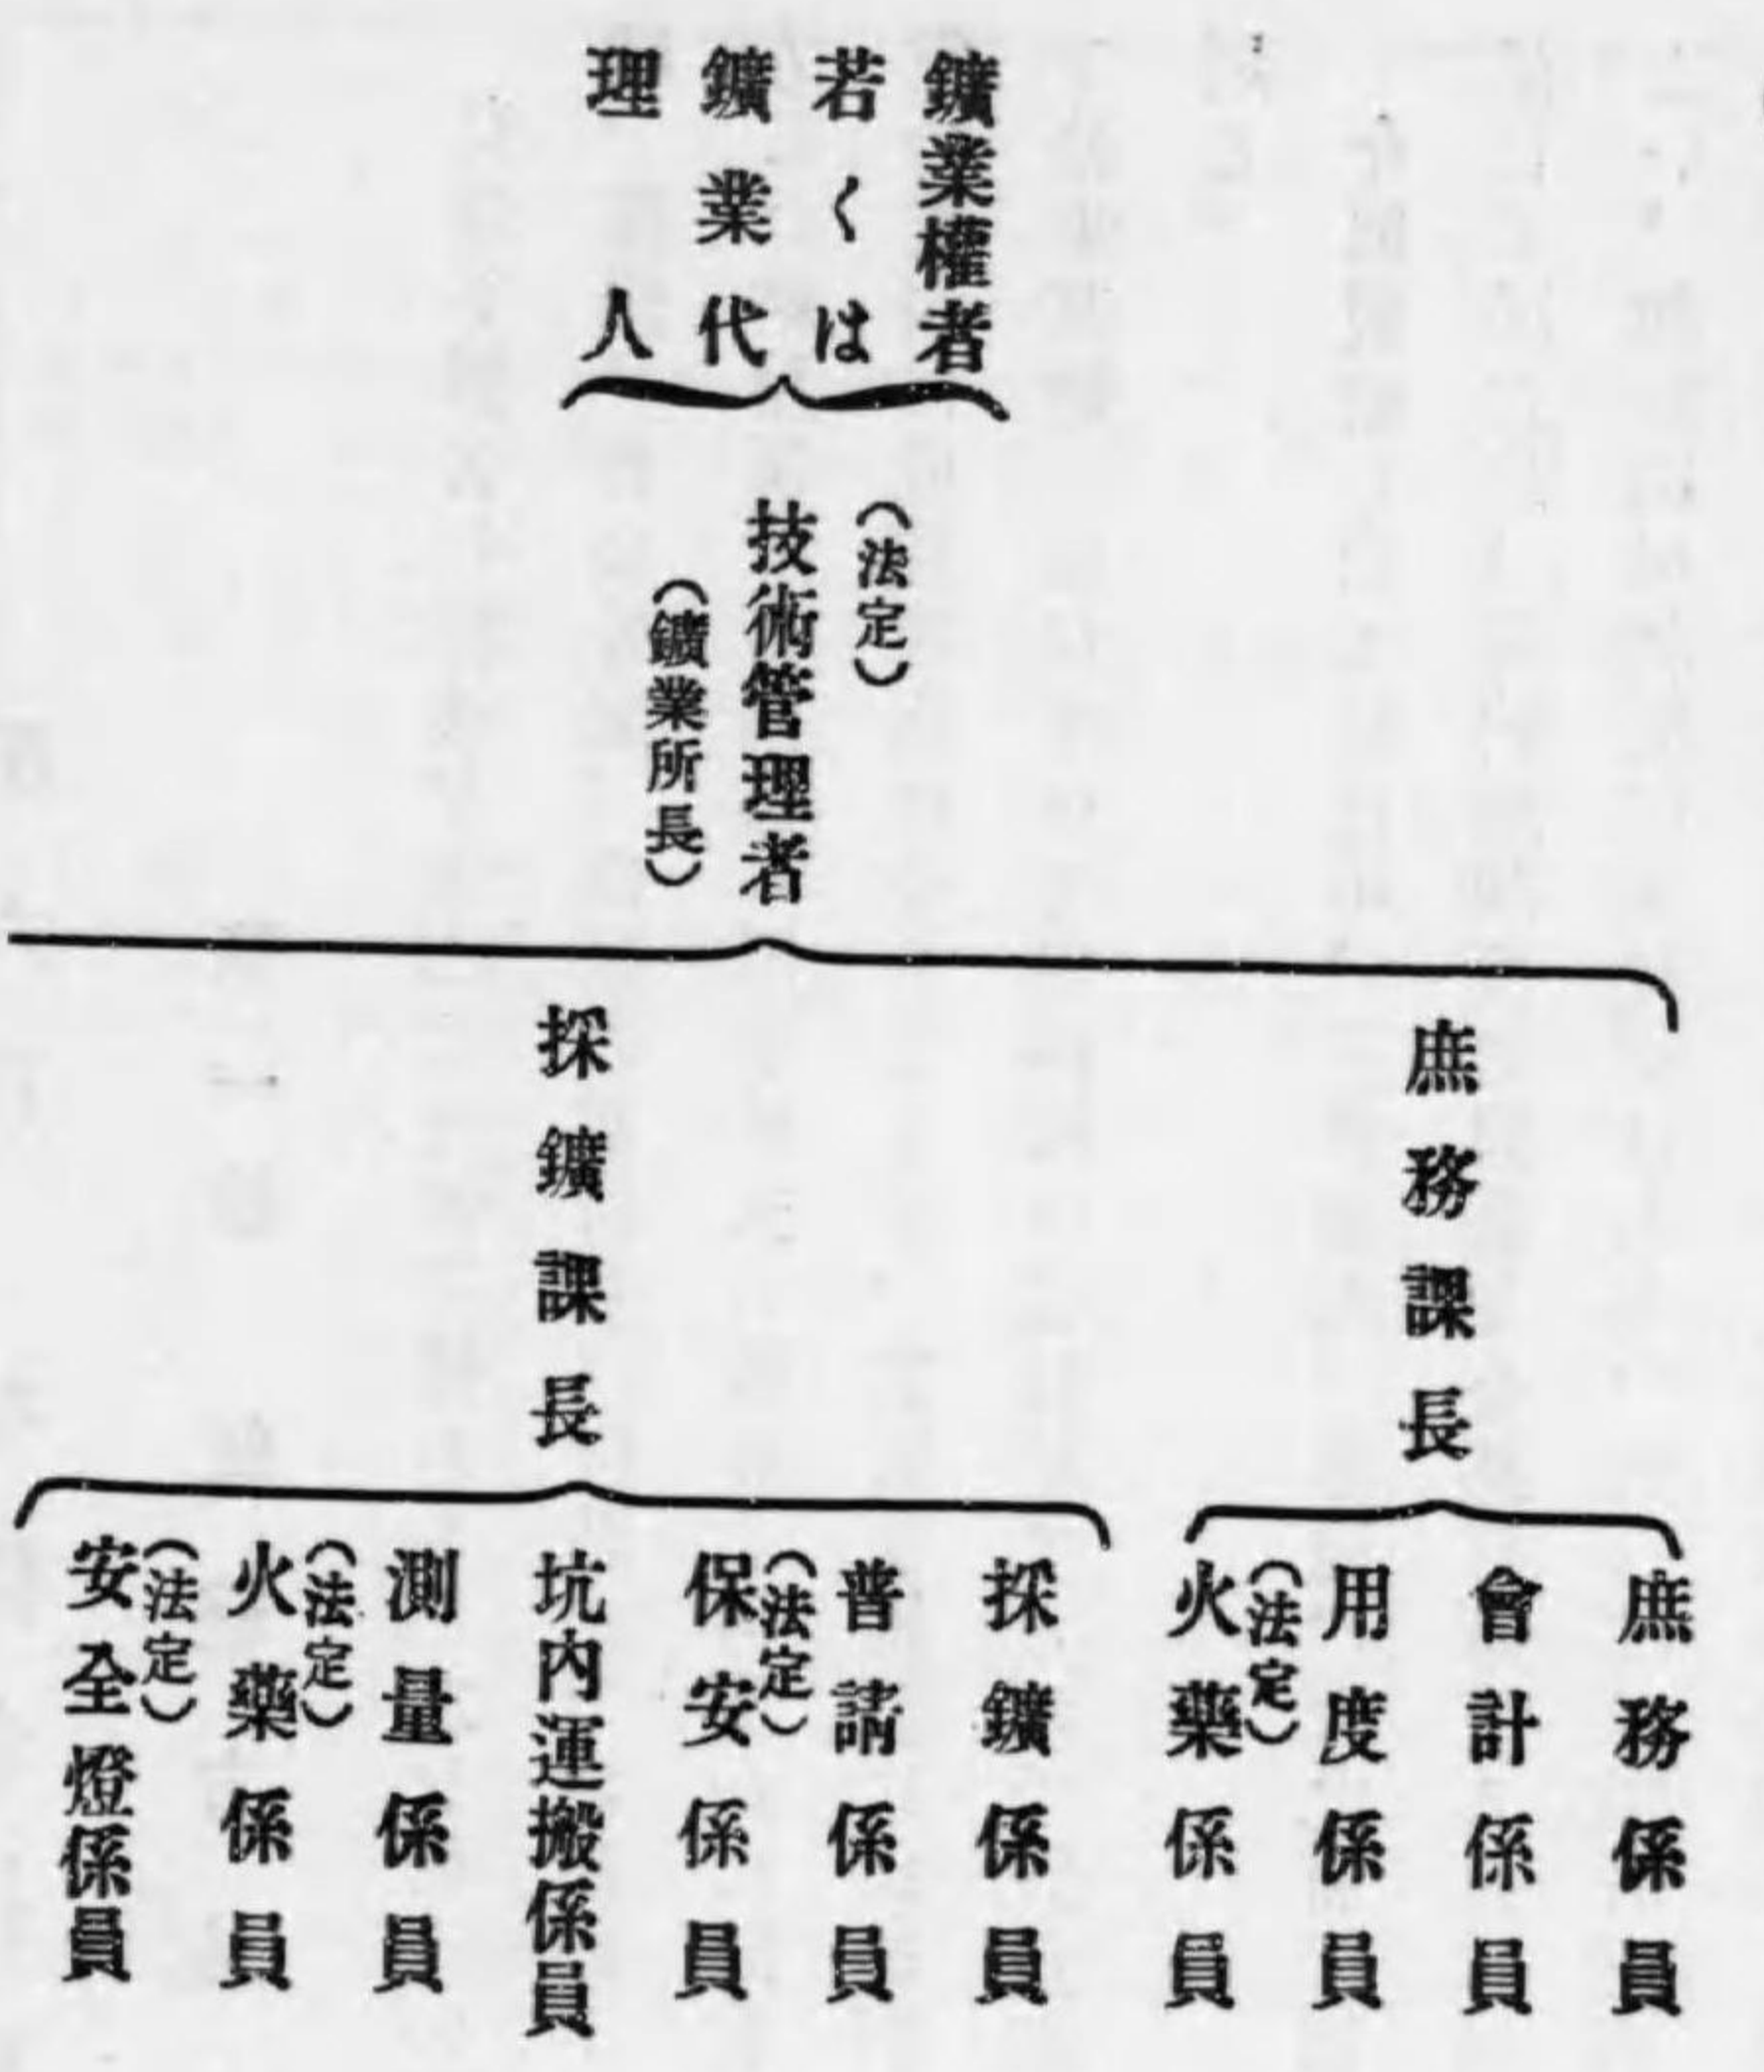 鑛業權者
若くは
鑛業代
理人
(法定)
技術管理者
(鑛業所長)
庶務課長
庶務係員
會計係員
用度係員
(法定)
火藥係員
採鑛課長
採鑛係員
普請係員
(法定)
保安係員
坑內運搬係員
測量係員
(法定)
火藥係員
(法定)
安全燈係員